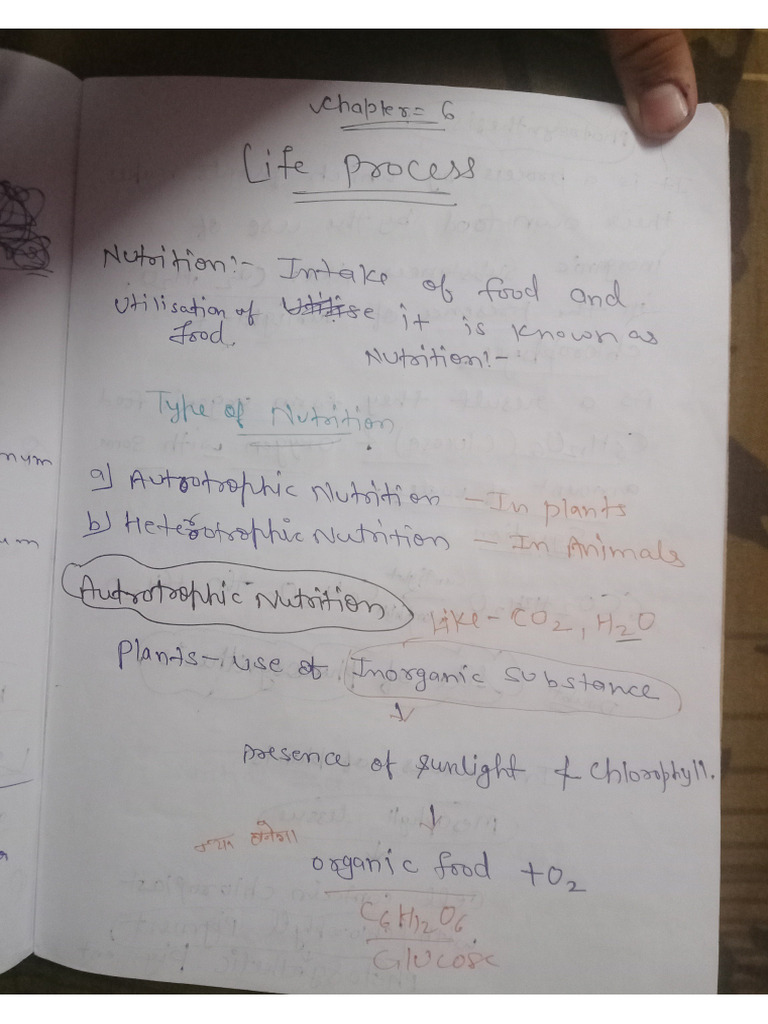 Chapter = 6
Life Process
Nutrition:- Intake of food and
Utilisation of it is known as
food. Nutrition:-
Type of Nutrition
a) Autrotrophic Nutrition - In plants
b) Heterotrophic Nutrition - In Animals
Autrotrophic Nutrition
Like - CO2, H2O
Plants - use of Inorganic substance
presence of sunlight & chlorophyll.
organic food + O2
C6H12O6
Glucose